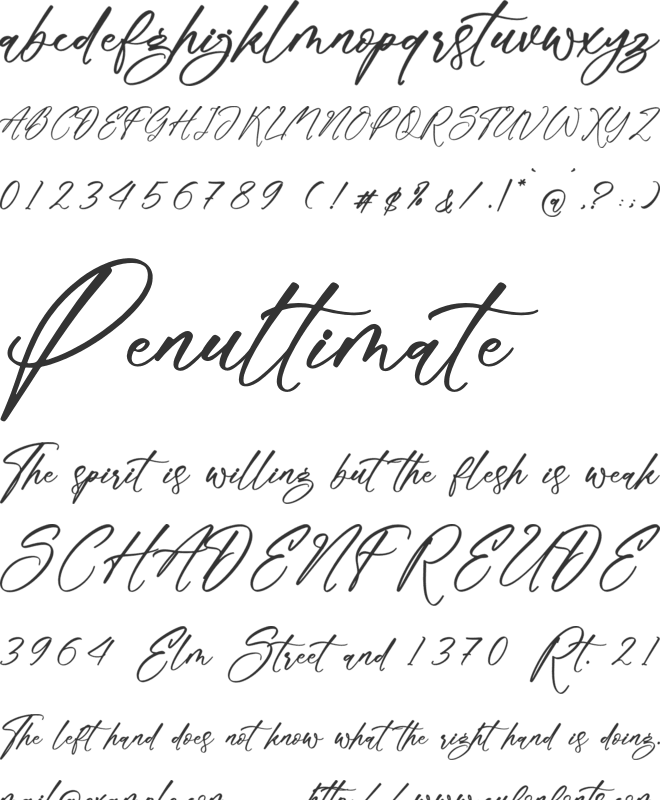 abcdefghijklmnopqrstuvwxyz
ABCDEFGHIJKLMNOPQRSTUVWXYZ
0123456789 (!#$%&/.|*`@´,?:;)
Penultimate
The spirit is willing but the flesh is weak
SCHADENFREUDE
3964 Elm Street and 1370 Rt. 21
The left hand does not know what the right hand is doing.